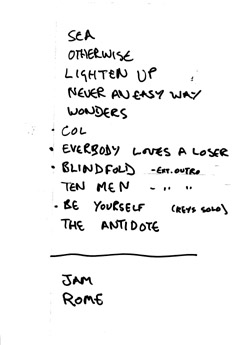 SEA
OTHERWISE
LIGHTEN UP
NEVER AN EASY WAY
WONDERS
• COL
• EVERBODY LOVES A LOSER
• BLINDFOLD - EXT. OUTRO
TEN MEN - " "
• BE YOURSELF (KEYS SOLO)
THE ANTIDOTE
JAM
ROME